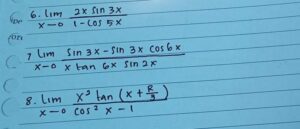 6. lim x→0 (2x sin 3x)/(1 - cos 5x)
7 lim x→0 (sin 3x - sin 3x cos 6x)/(x tan 6x sin 2x)
8. lim x→0 (x³ tan (x + π/3))/(cos² x - 1)